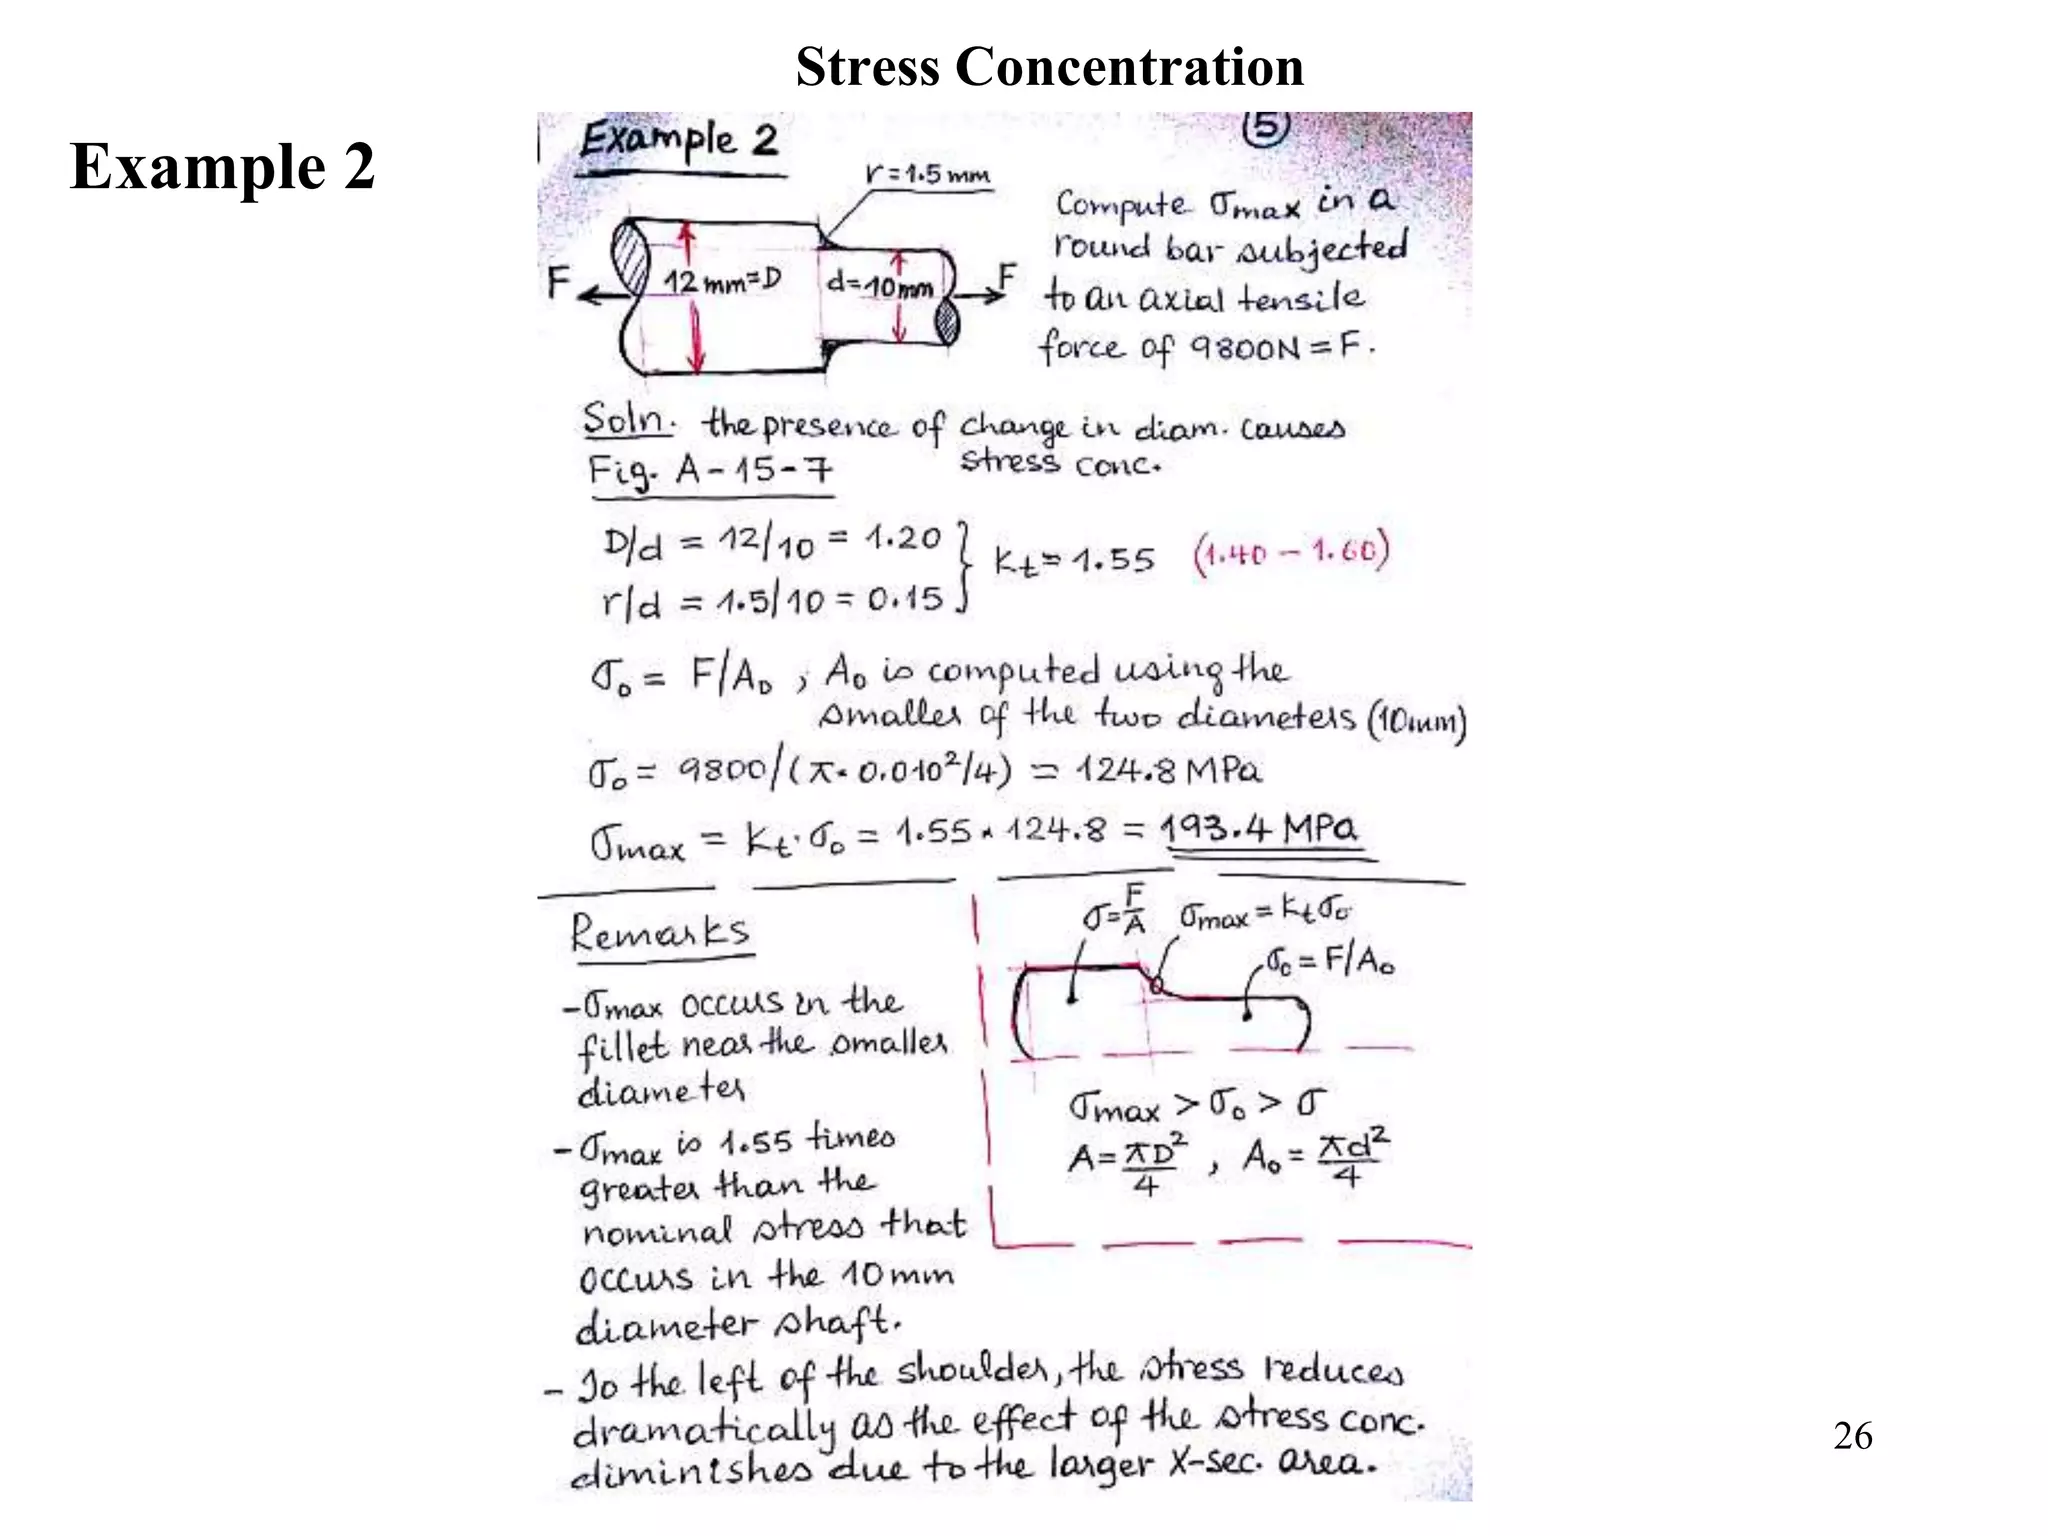 Stress Concentration
Example 2
Example 2
5
r = 1.5 mm
F
12 mm = D
d = 10 mm
F
Compute σmax in a
round bar subjected
to an axial tensile
force of 9800N = F.
Soln. the presence of change in diam. causes
stress conc.
Fig. A-15-7
D/d = 12/10 = 1.20
r/d = 1.5/10 = 0.15
Kt = 1.55 (1.40 - 1.60)
σo = F/Ao , Ao is computed using the
smaller of the two diameters (10mm)
σo = 9800/(π · 0.010²/4) = 124.8 MPa
σmax = Kt · σo = 1.55 * 124.8 = 193.4 MPa
Remarks
- σmax occurs in the
fillet near the smaller
diameter
- σmax is 1.55 times
greater than the
nominal stress that
occurs in the 10 mm
diameter shaft.
- To the left of the shoulder, the stress reduces
dramatically as the effect of the stress conc.
diminishes due to the larger X-sec. area.
σ = F/A
σmax = Kt σo
σo = F/Ao
σmax > σo > σ
A = πD²/4 , Ao = πd²/4
26